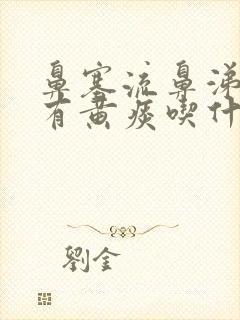 鼻塞流鼻涕
有黄痰喫什
劉金